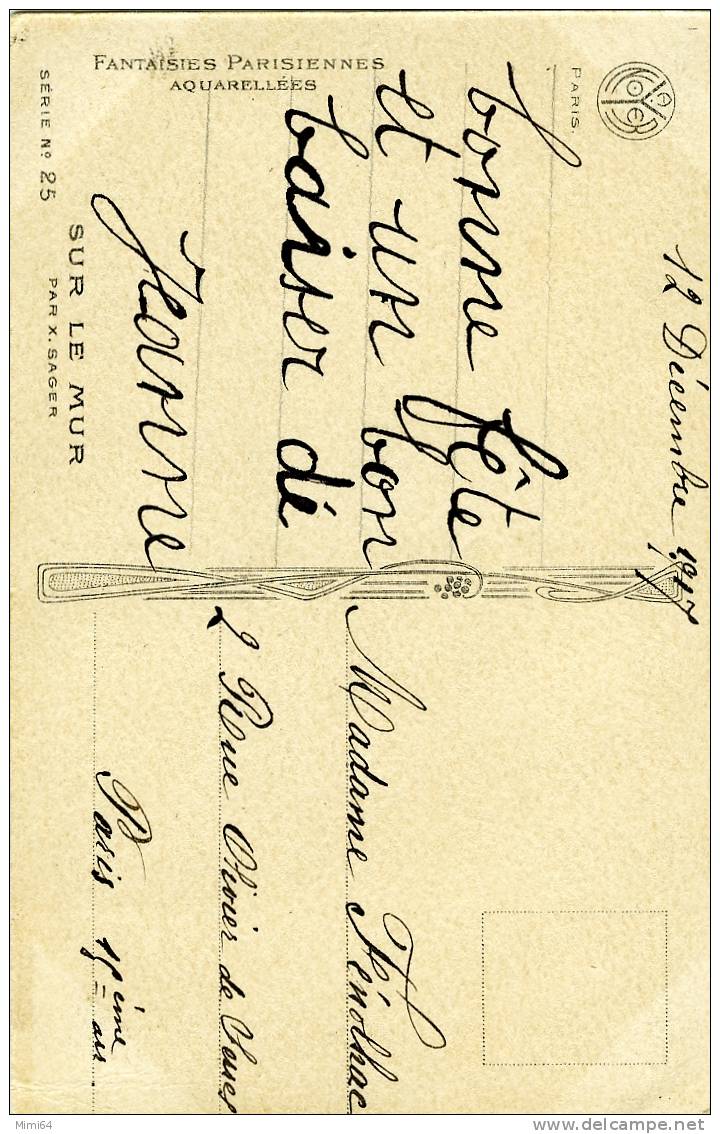 FANTAISIES PARISIENNES
AQUARELLÉES
PARIS.
12 Décembre 1917
bonne fête
et un bon
baiser dé
Jeanne
SÉRIE Nº 25
SUR LE MUR
PAR X. SAGER
Madame Fénolhac
2 Rue Olivier de Serres
Paris 15ème arr
Mimi64
delcampe.net